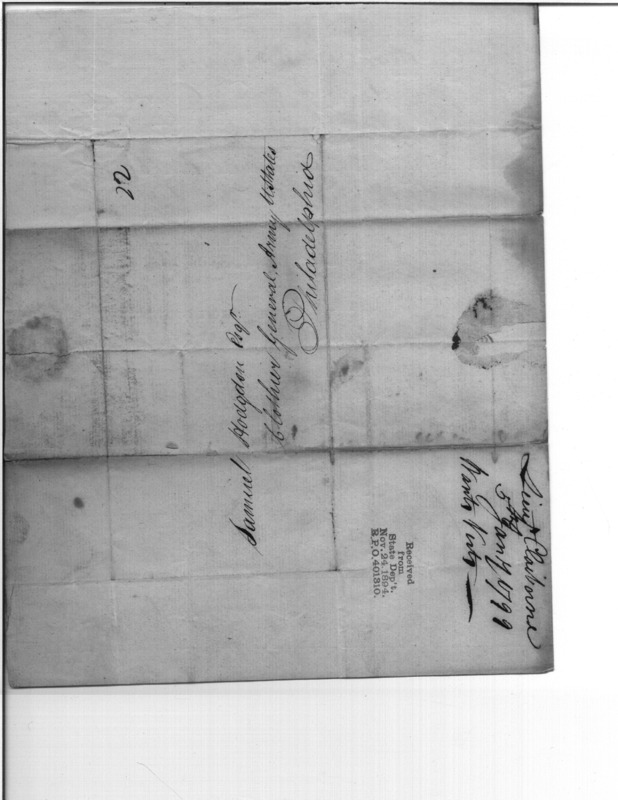 22
Samuel Hodgdon Esqr.
Clothier General Army UStates
Philadelphia
Received
from
State Dep't.
Nov. 24, 1894.
R.P.O. 401310.
Lieut. Claiborne
5th Jany 1799